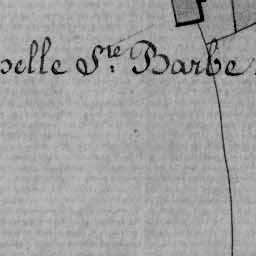 pelle Ste Barbe